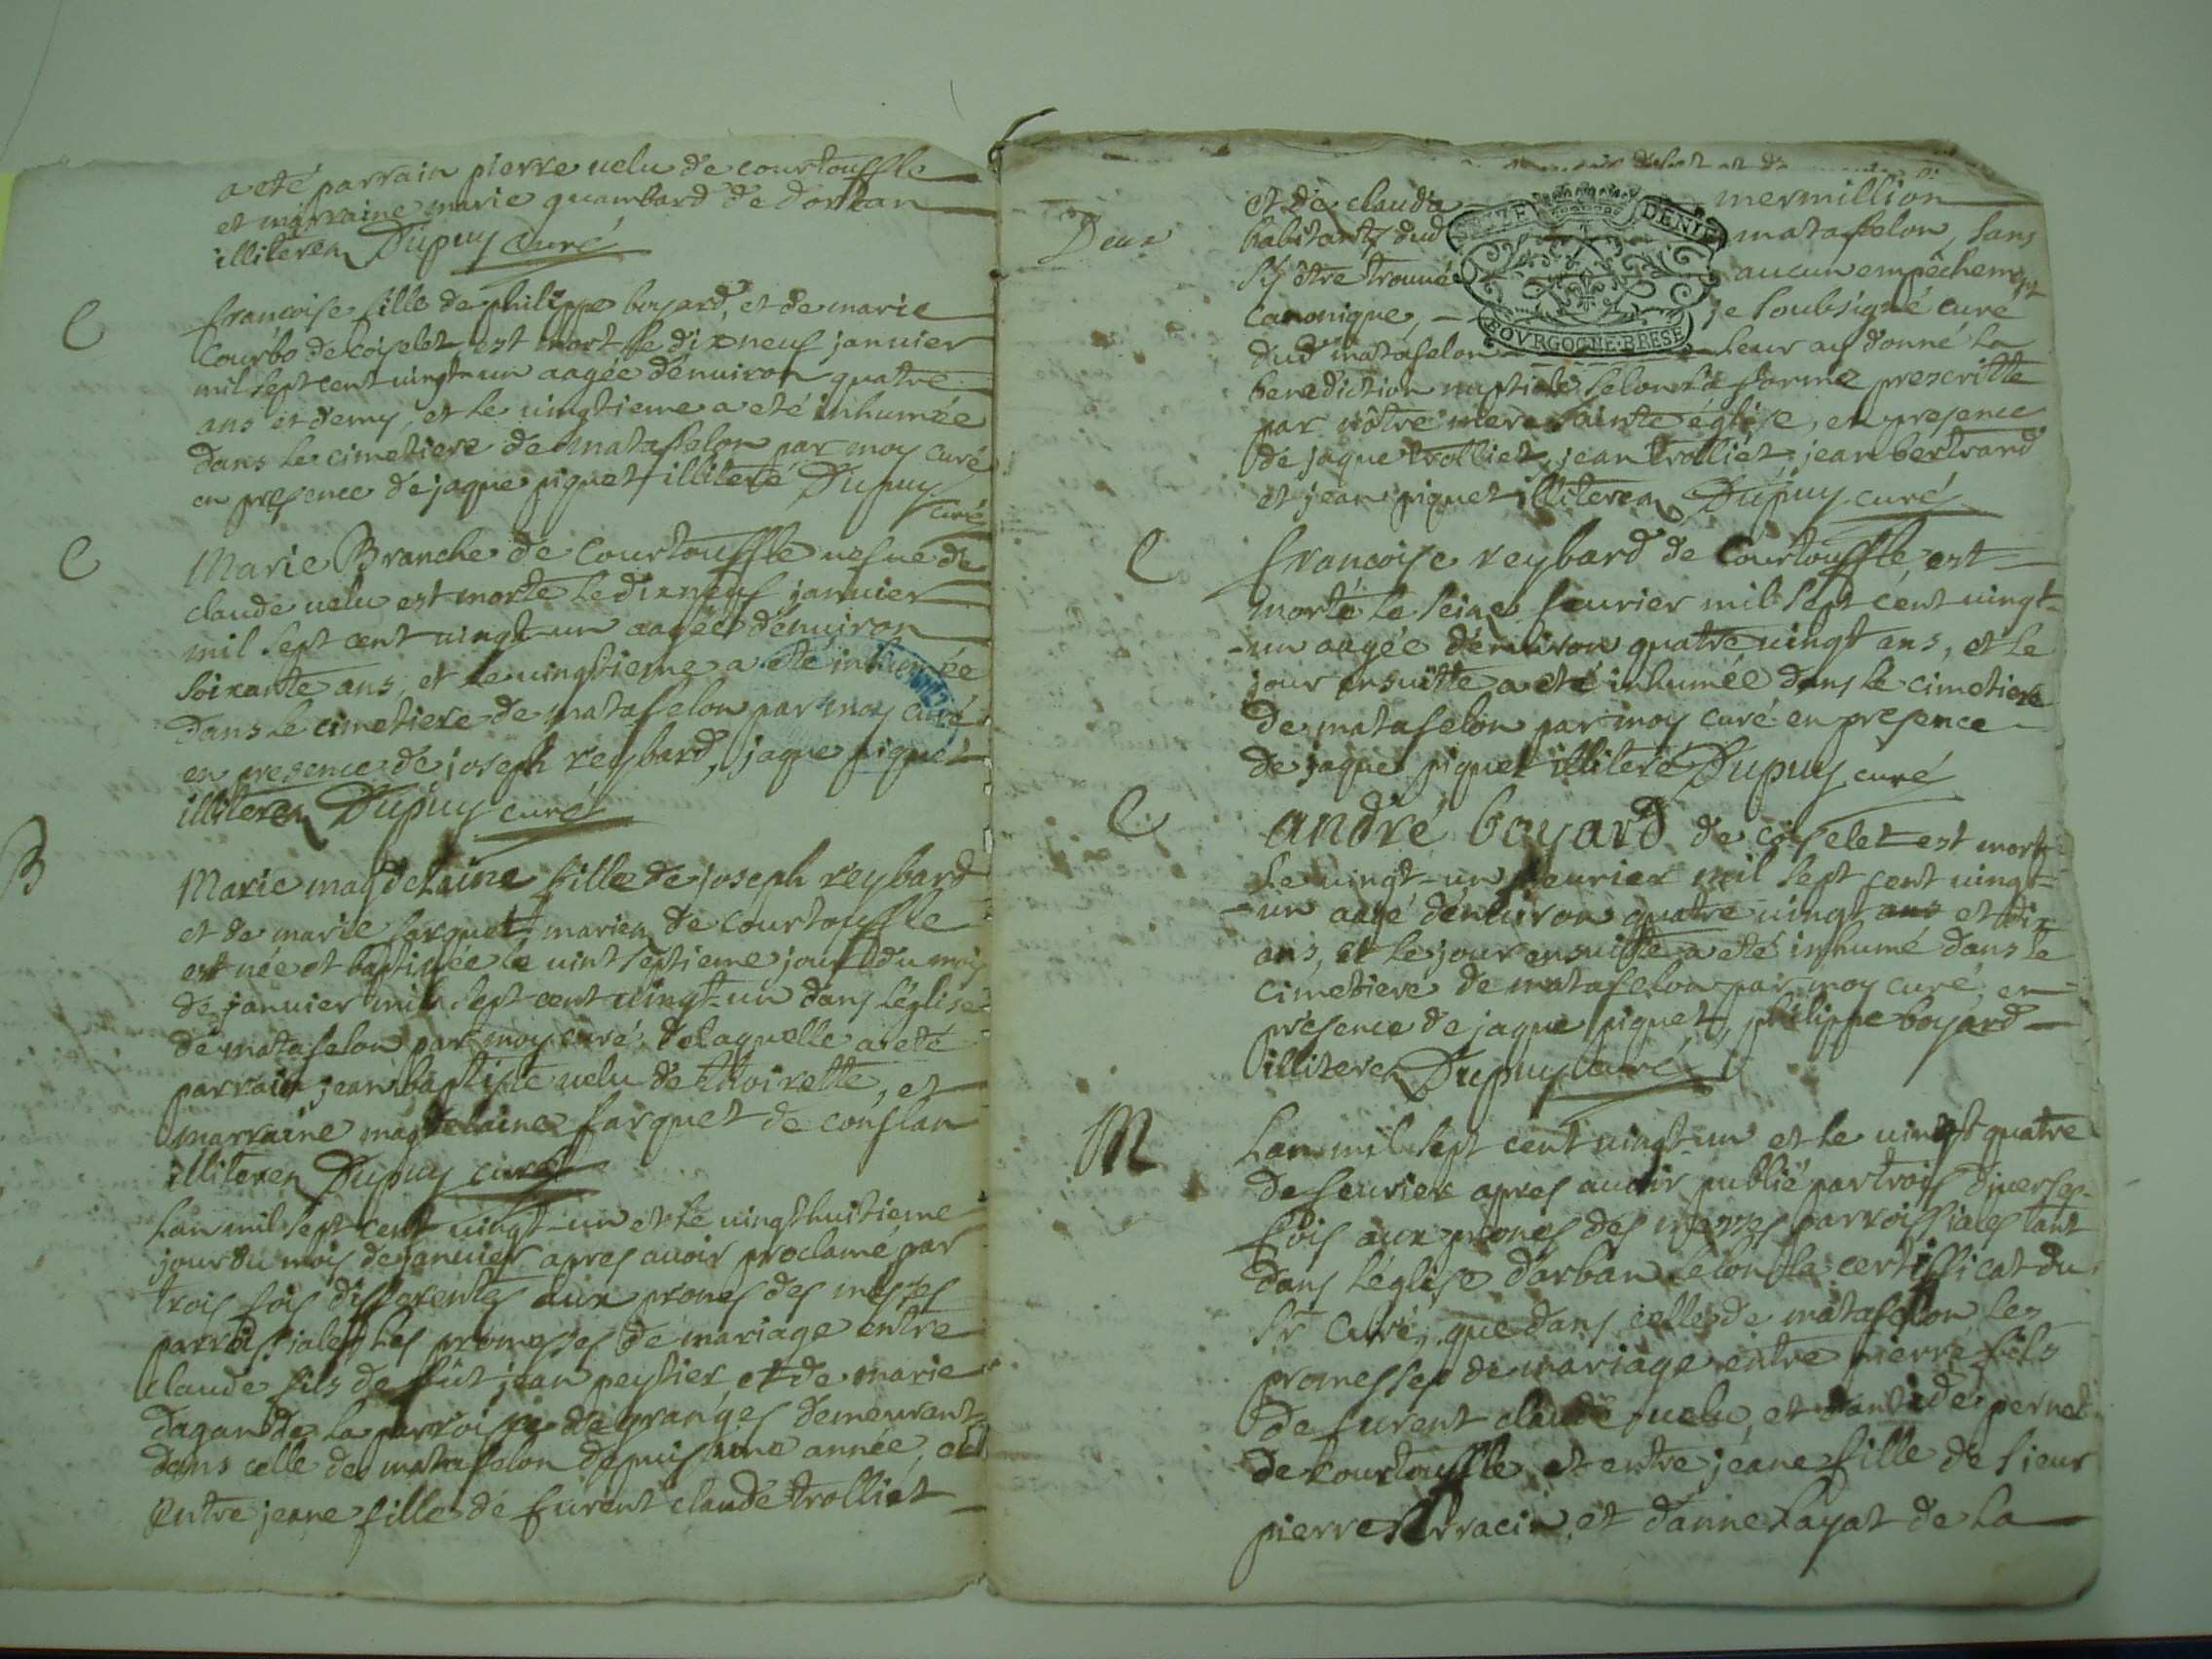 a eté parrain pierre uelu de courtouffle
et marraine marie quambard de dortan
illiterez Dupuy curé
C
francoise fille de philippe boyard, et de marie
Courbo de coiselet est mort le dixneuf januier
mil sept cent uingt-un aagée d'enuiron quatre
ans et demy, et le uingtieme a eté inhumée
dans le cimetiere de matafelon par moy curé
en presence de jaque piquet illiteré Dupuy
curé
C
Marie Branche de Courtouffle uefue de
claude uelu est morte le dixneuf januier
mil sept cent uingt-un aagée d'enuiron
soixante ans, et le uingtieme a eté inhumée
dans le cimetiere de matafelon par moy curé
en presence de joseph reybard, jaque piquet
illiterez Dupuy curé
B
Marie magdelaine fille de joseph reybard
et de marie farquet mariez de courtouffle
est née et baptisée le uint septieme jour du mois
de januier mil sept cent uingt-un dans l'église
de matafelon par moy curé, de laquelle a eté
parrain jean baptiste uelu de thoirette, et
marraine magdelaine farquet de conflan
illiterez Dupuy curé
Lan mil sept cent uingt-un et le uingthuitieme
jour du mois de januier apres auoir proclamé par
trois fois differentes aux prones des messes
parroissiales les promesses de mariage entre
claude fils de fût jean peysier, et de marie
dagand de la parroisse de granges demeurant
dans celle de matafelon depuis une année, et
entre jeane fille de furent claude trolliet
Deux
et de claudia mermillion
habitants dud matafelon, sans
s'y être trouué aucun empêchement
canonique, je soubsigné curé
dud matafelon leur ay donné la
benediction nuptiale selon la forme prescritte
par nôtre mere sainte église, en presence
de jaque trolliet, jean trolliet, jean bertrand
et jean piquet illiterez Dupuy curé
C
francoise reybard de Courtouffle, est
morte le seize feurier mil sept cent uingt-
-un aagée d'enuiron quatre uingt ans, et le
jour ensuitte a eté inhumée dans le cimetiere
de matafelon par moy curé en presence
de jaque piquet illiteré Dupuy curé
C
andré boyard de coiselet est mort
le uingt-un feurier mil sept cent uingt-
-un aagé d'enuiron quatre uingt ans et dix
ans, et le jour ensuitte a eté inhumé dans le
cimetiere de matafelon par moy curé, en
presence de jaque piquet, philippe boyard
illiterez Dupuy curé
M
Lan mil sept cent uingt-un et le uingt quatre
de feurier apres auoir publié par trois diuerses
fois aux prones des messes parroissiales tant
dans l'église d'arban selon la certifficat du
Sr Curé, que dans celle de matafelon les
promesses de mariage entre pierre fils
de furent claude uelu, et pernet
de courtouffle, et entre jeane fille de sieur
pierre et d'anne Layat de La
BOVRGOGNE·BRESE